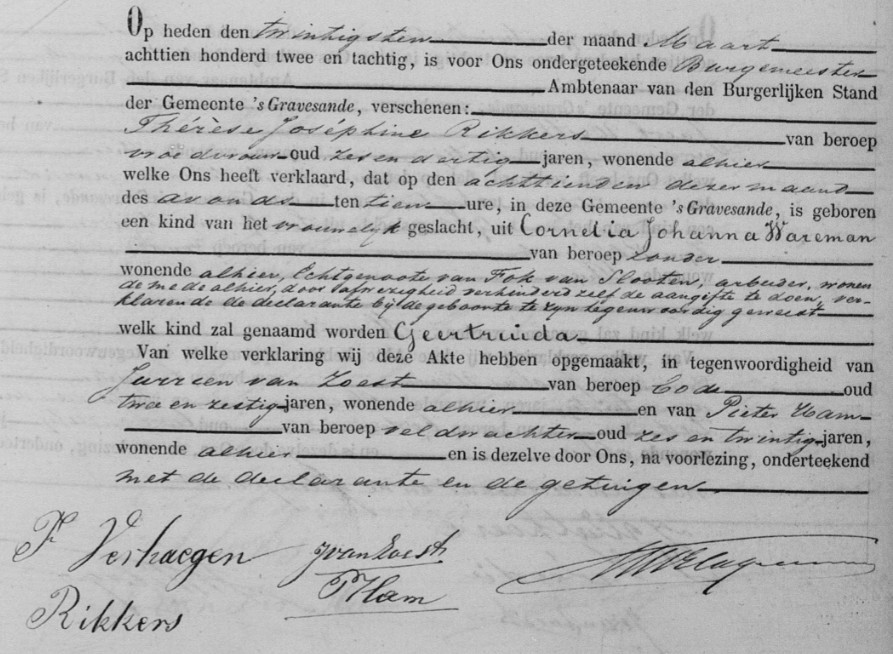 Op heden den twintigsten der maand Maart
achttien honderd twee en tachtig, is voor Ons ondergeteekende Burgemeester
Ambtenaar van den Burgerlijken Stand
der Gemeente 's Gravesande, verschenen:
Thérèse Joséphine Rikkers van beroep
vroedvrouw oud zes en dertig jaren, wonende alhier
welke Ons heeft verklaard, dat op den achttienden dezer maand
des avonds ten tien ure, in deze Gemeente 's Gravesande, is geboren
een kind van het vrouwelijk geslacht, uit Cornelia Johanna Wareman
van beroep zonder
wonende alhier, Echtgenoote van Fok van Slooten, arbeider, wonen
de mede alhier, door afwezigheid verhinderd zelf de aangifte te doen, ver-
klarende de declarante bij de geboorte te zijn tegenwoordig geweest
welk kind zal genaamd worden Geertruida
Van welke verklaring wij deze Akte hebben opgemaakt, in tegenwoordigheid van
Jurrien van Zoest van beroep bode oud
twee en zestig jaren, wonende alhier en van Pieter Ham
van beroep veldwachter oud zes en twintig jaren,
wonende alhier en is dezelve door Ons, na voorlezing, onderteekend
met de declarante en de getuigen
F Verhaegen JvanZoest
PHam
Rikkers